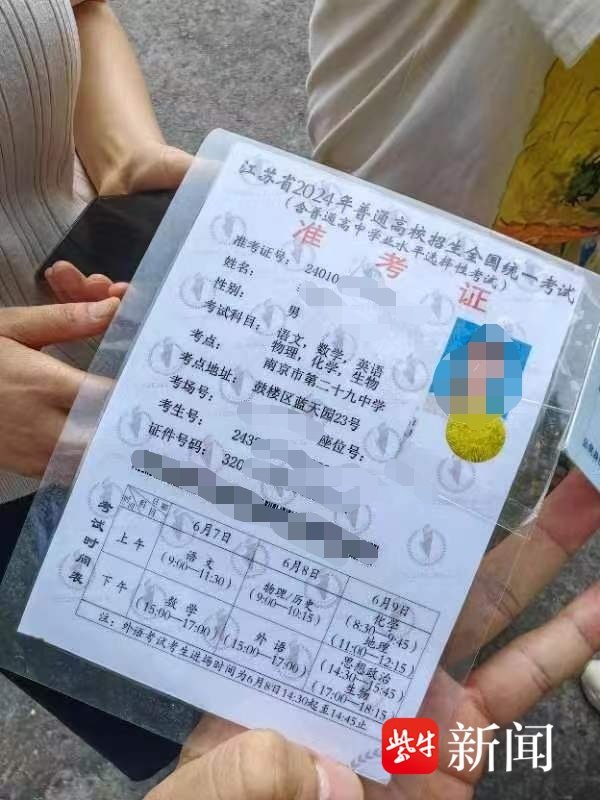 江苏省2024年普通高校招生全国统一考试
(含普通高中学业水平选择性考试)
准考证
准考证号: 24010
姓名:
性别: 男
考试科目: 语文, 数学, 英语
物理, 化学, 生物
考点: 南京市第二十九中学
考点地址: 鼓楼区蓝天园23号
考场号: 座位号:
考生号: 243
证件号码: 320
考试时间表
时间 科目 日期 6月7日 6月8日 6月9日
上午 语文 (9:00—11:30) 物理/历史 (9:00—10:15) 化学 (8:30—9:45)
地理 (11:00—12:15)
下午 数学 (15:00—17:00) 外语 (15:00—17:00) 思想政治 (14:30—15:45)
生物 (17:00—18:15)
注: 外语考试考生进场时间为6月8日14:30起至14:45止
紫牛新闻